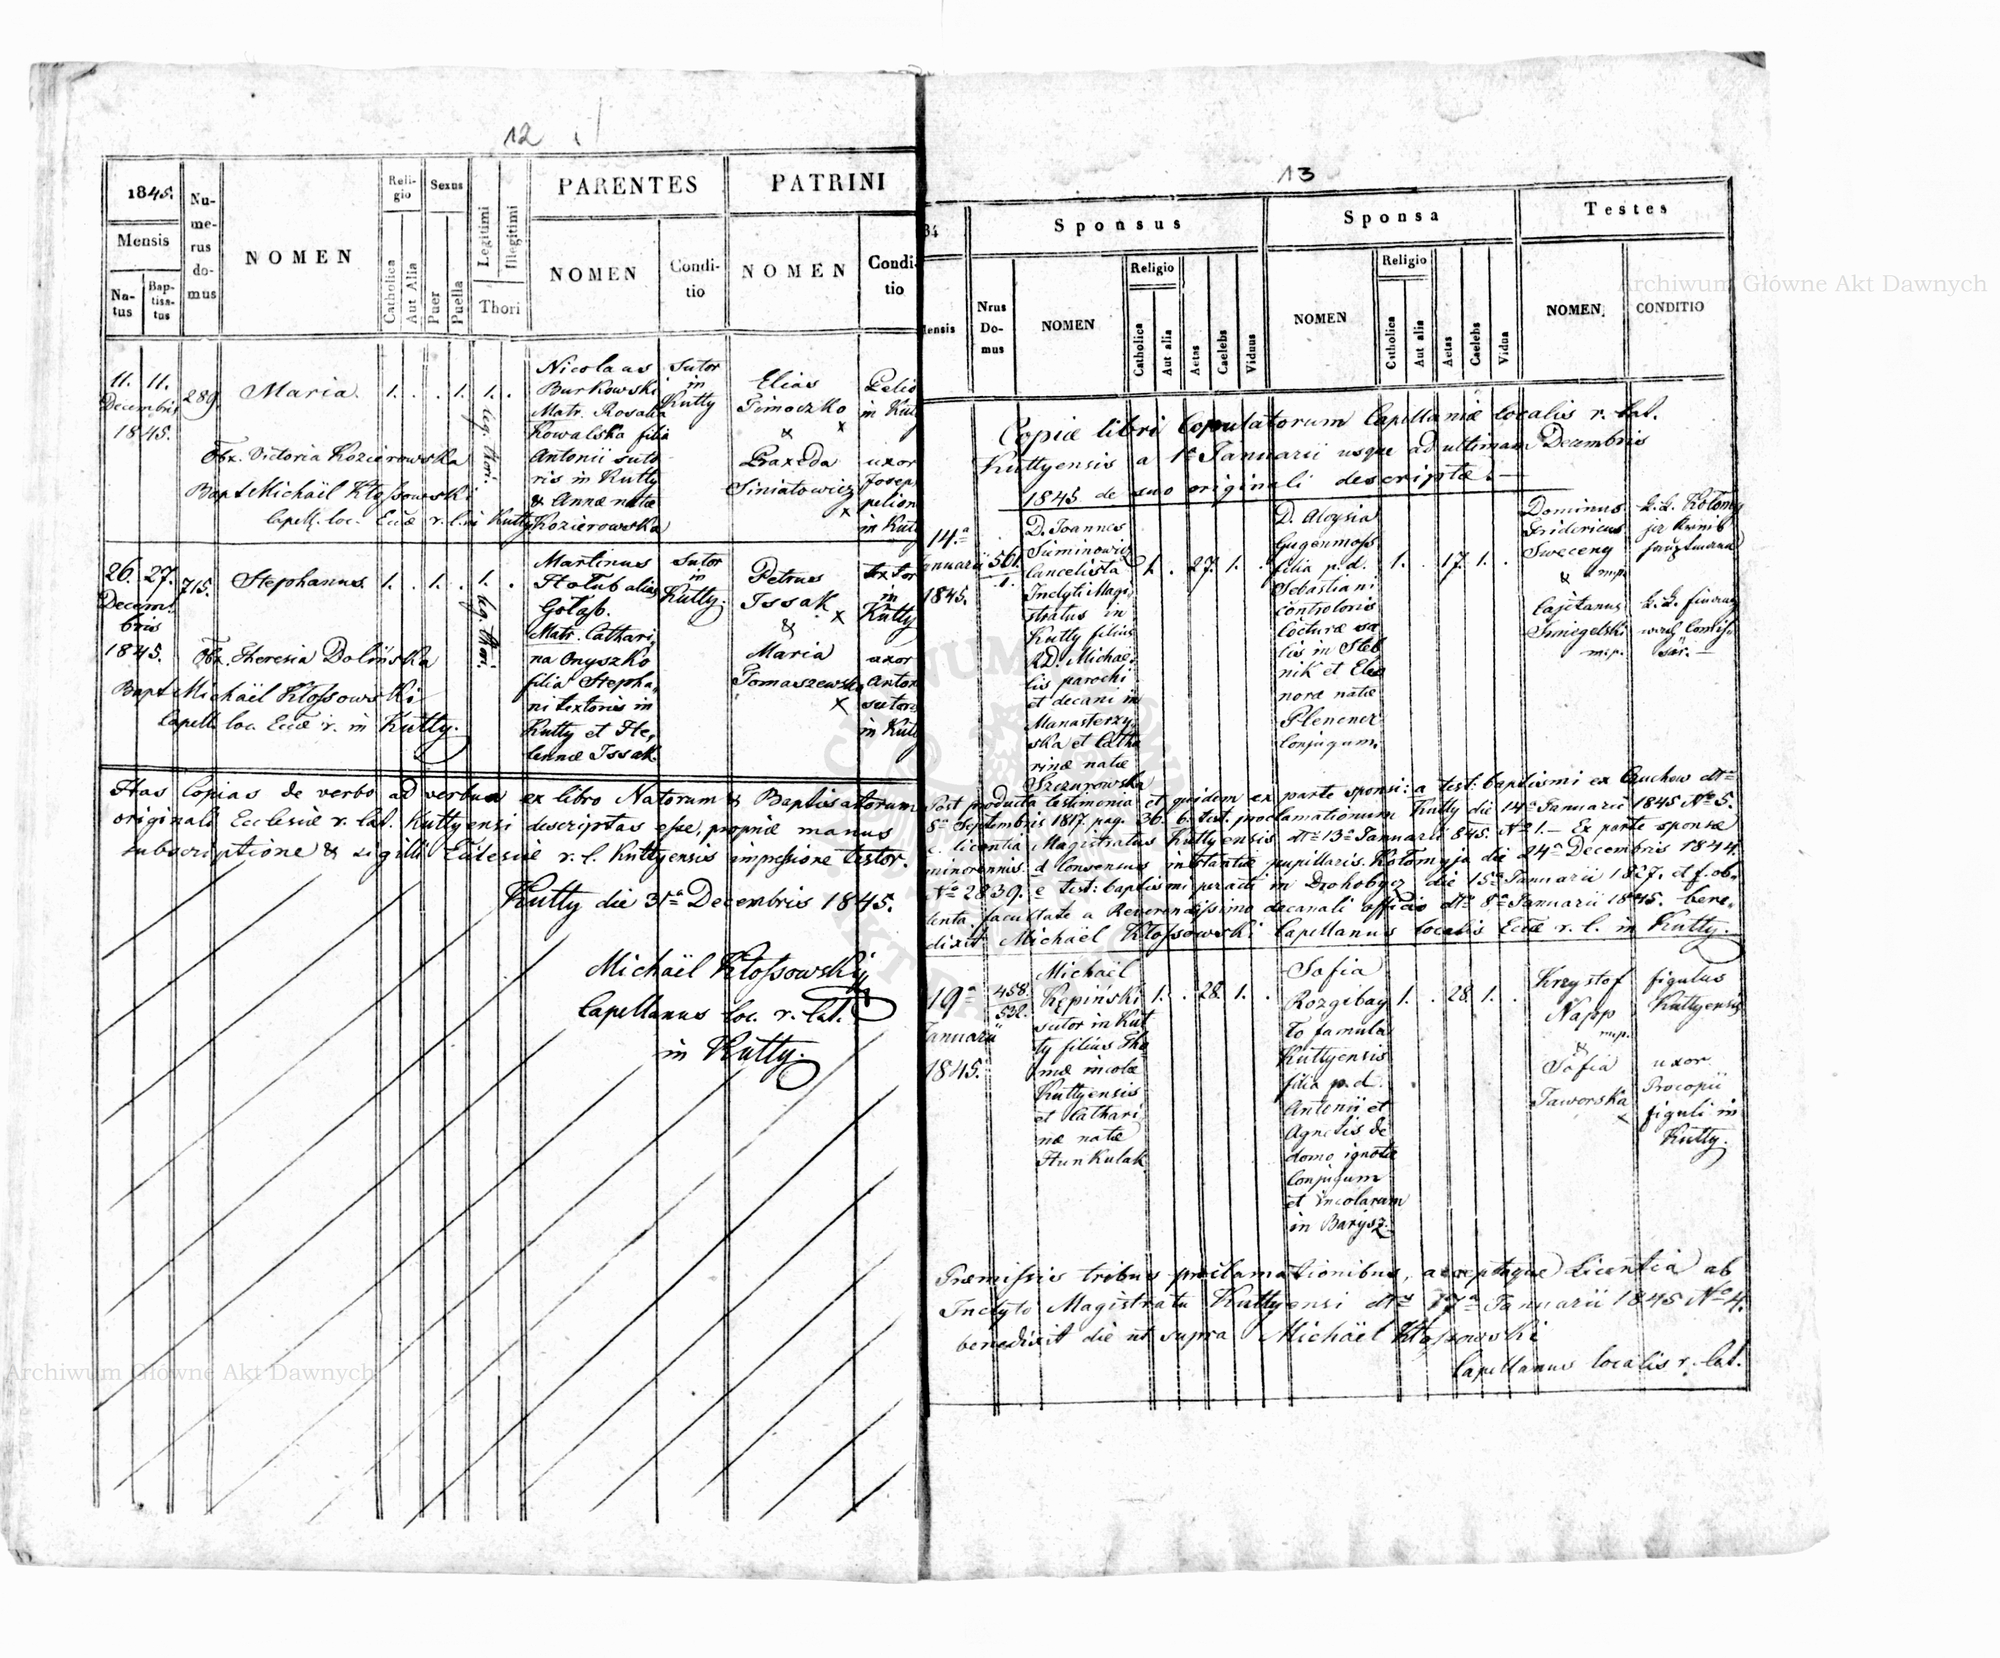 12
1845.
Mensis
Na-
tus
Bap-
tisa-
tus
Nu-
me-
rus
do-
mus
NOMEN
Reli-
gio
Catholica
Aut Alia
Sexus
Puer
Puella
Legitimi
Illegitimi
Thori
PARENTES
NOMEN
Condi-
tio
PATRINI
NOMEN
Condi-
tio
11. 11.
Decembris
1845.
289
Maria.
1. . . 1. 1. .
leg. thori.
Nicolaus
Burkowski
Matr. Rosalia
Kowalska filia
Antonii suto
ris in Kutty
& Annæ natæ
Kozierowska
Sutor
in
Kutty
Elias
Timoczko
& x
Praxeda
Siniatowicz
x
Pelio
in Kut
uxor
Josep
pelion
in Kut
Obx. Victoria Kozierowska
Bapt Michaël Kłossowski
Capell. loc. Eccæ r. l. in Kutty
26. 27.
Decem.
bris
1845.
715.
Stephanus.
1. . 1. . 1. .
leg. thori.
Martinus
Hołub alias
Gołąb.
Matr. Cathari
na Onyszko
filia Stepha,
ni textoris in
Kutty et He,
lennæ Issak.
Sutor
in
Kutty.
Petrus
Issak x
&
Maria
Tomaszewska
x
in
Kutty
uxor
Anton
sutor
in Kut
Obx. Theresia Dolińska
Bapt Michaël Kłossowski
Capell. loc. Eccæ r. in Kutty.
Has Copias de verbo ad verbum ex libro Natorum & Baptisatorum
originali Ecclesiæ r. lat. Kuttyensi descriptas esse, propriæ manus
subscriptione & sigilli Ecclesiæ r. l. Kuttyensis impressione testor.
Kutty die 31ª Decembris 1845.
Michaël Kłossowski
Capellanus loc. r. lat.
in Kutty.
13
84
Mensis
Nrus
Do-
mus
Sponsus
NOMEN
Religio
Catholica
Aut alia
Aetas
Caelebs
Viduus
Sponsa
NOMEN
Religio
Catholica
Aut alia
Aetas
Caelebs
Vidua
Testes
NOMEN
CONDITIO
Copiæ libri Copulatorum Capellaniæ localis r. lat.
Kuttyensis a 1ª Januarii usque ad ultimam Decembris
1845 de suo originali descriptæ.—
14.ª
Januarii
1845.
561.
1.
D. Joannes
Suminowicz
Cancelista
Inclyti Magi
stratus in
Kutty filius
RD. Michaë,
lis parochi
et decani in
Manasterzy,
ska et Catha
rinæ natæ
Szczurowska
1. . 27. 1. .
D. Aloysia
Gugenmoss
filia p. d.
Sebastiani
Controloris
Cocturæ sa
lis in Steb
nik et Eleo
noræ natæ
Plencner
Conjugum.
1. . 17. 1. .
Dominus
Fridericus
Sweceny
& mp.
Cajetanus
Smiegelski
mp.
k. k. Kolomy
jer Kreis
hauptmann
k. k. Finanz
wach Comiss
sär.—
Post producta testimonia et quidem ex parte sponsi: a test: baptismi ex Ruchow dtº
8ª Septembris 1817. pag. 36. b. test. proclamationum Kutty die 14ª Januarii 1845 Nº 5.
c. licentia Magistratus Kuttyensis dtº 13ª Januarii 845. Nº 1.— Ex parte sponsæ
minorennis. d Consensus instantiæ pupillaris. Kołomyja die 24ª Decembris 1844.
Nº 2839. e test: baptismi peracti in Drohobycz die 15ª Januarii 1827. et f. ob,
tenta facultate a Reverendissimo decanali officio dtº 8ª Januarii 1845. bene,
dixit Michaël Kłossowski Capellanus localis Eccæ r. l. in Kutty.
19ª
Januarii
1845.
458
532.
Michaël
Kępiński
sutor in Kut
ty filius Tho
mæ incolæ
Kuttyensis
et Cathari
næ natæ
Hunkulak
1. . 28. 1. .
Sofia
Rozgibay
to famula
Kuttyensis
filia p. d.
Antonii et
Agnetis de
domo ignotæ
Conjugum
et incolarum
in Barysz.
1. . 28. 1. .
Krzysztof
Napp
mp.
&
Sofia
Jaworska
x
figulus
Kuttyensis
uxor
Procopii
figuli in
Kutty.
Præmissis tribus proclamationibus, acceptaque Licentia ab
Inclyto Magistratu Kuttyensi dtº 17ª Januarii 1845 Nº 4.
benedixit die ut supra Michaël Kłossowski
Capellanus localis r. lat.
Archiwum Główne Akt Dawnych
Archiwum Główne Akt Dawnych